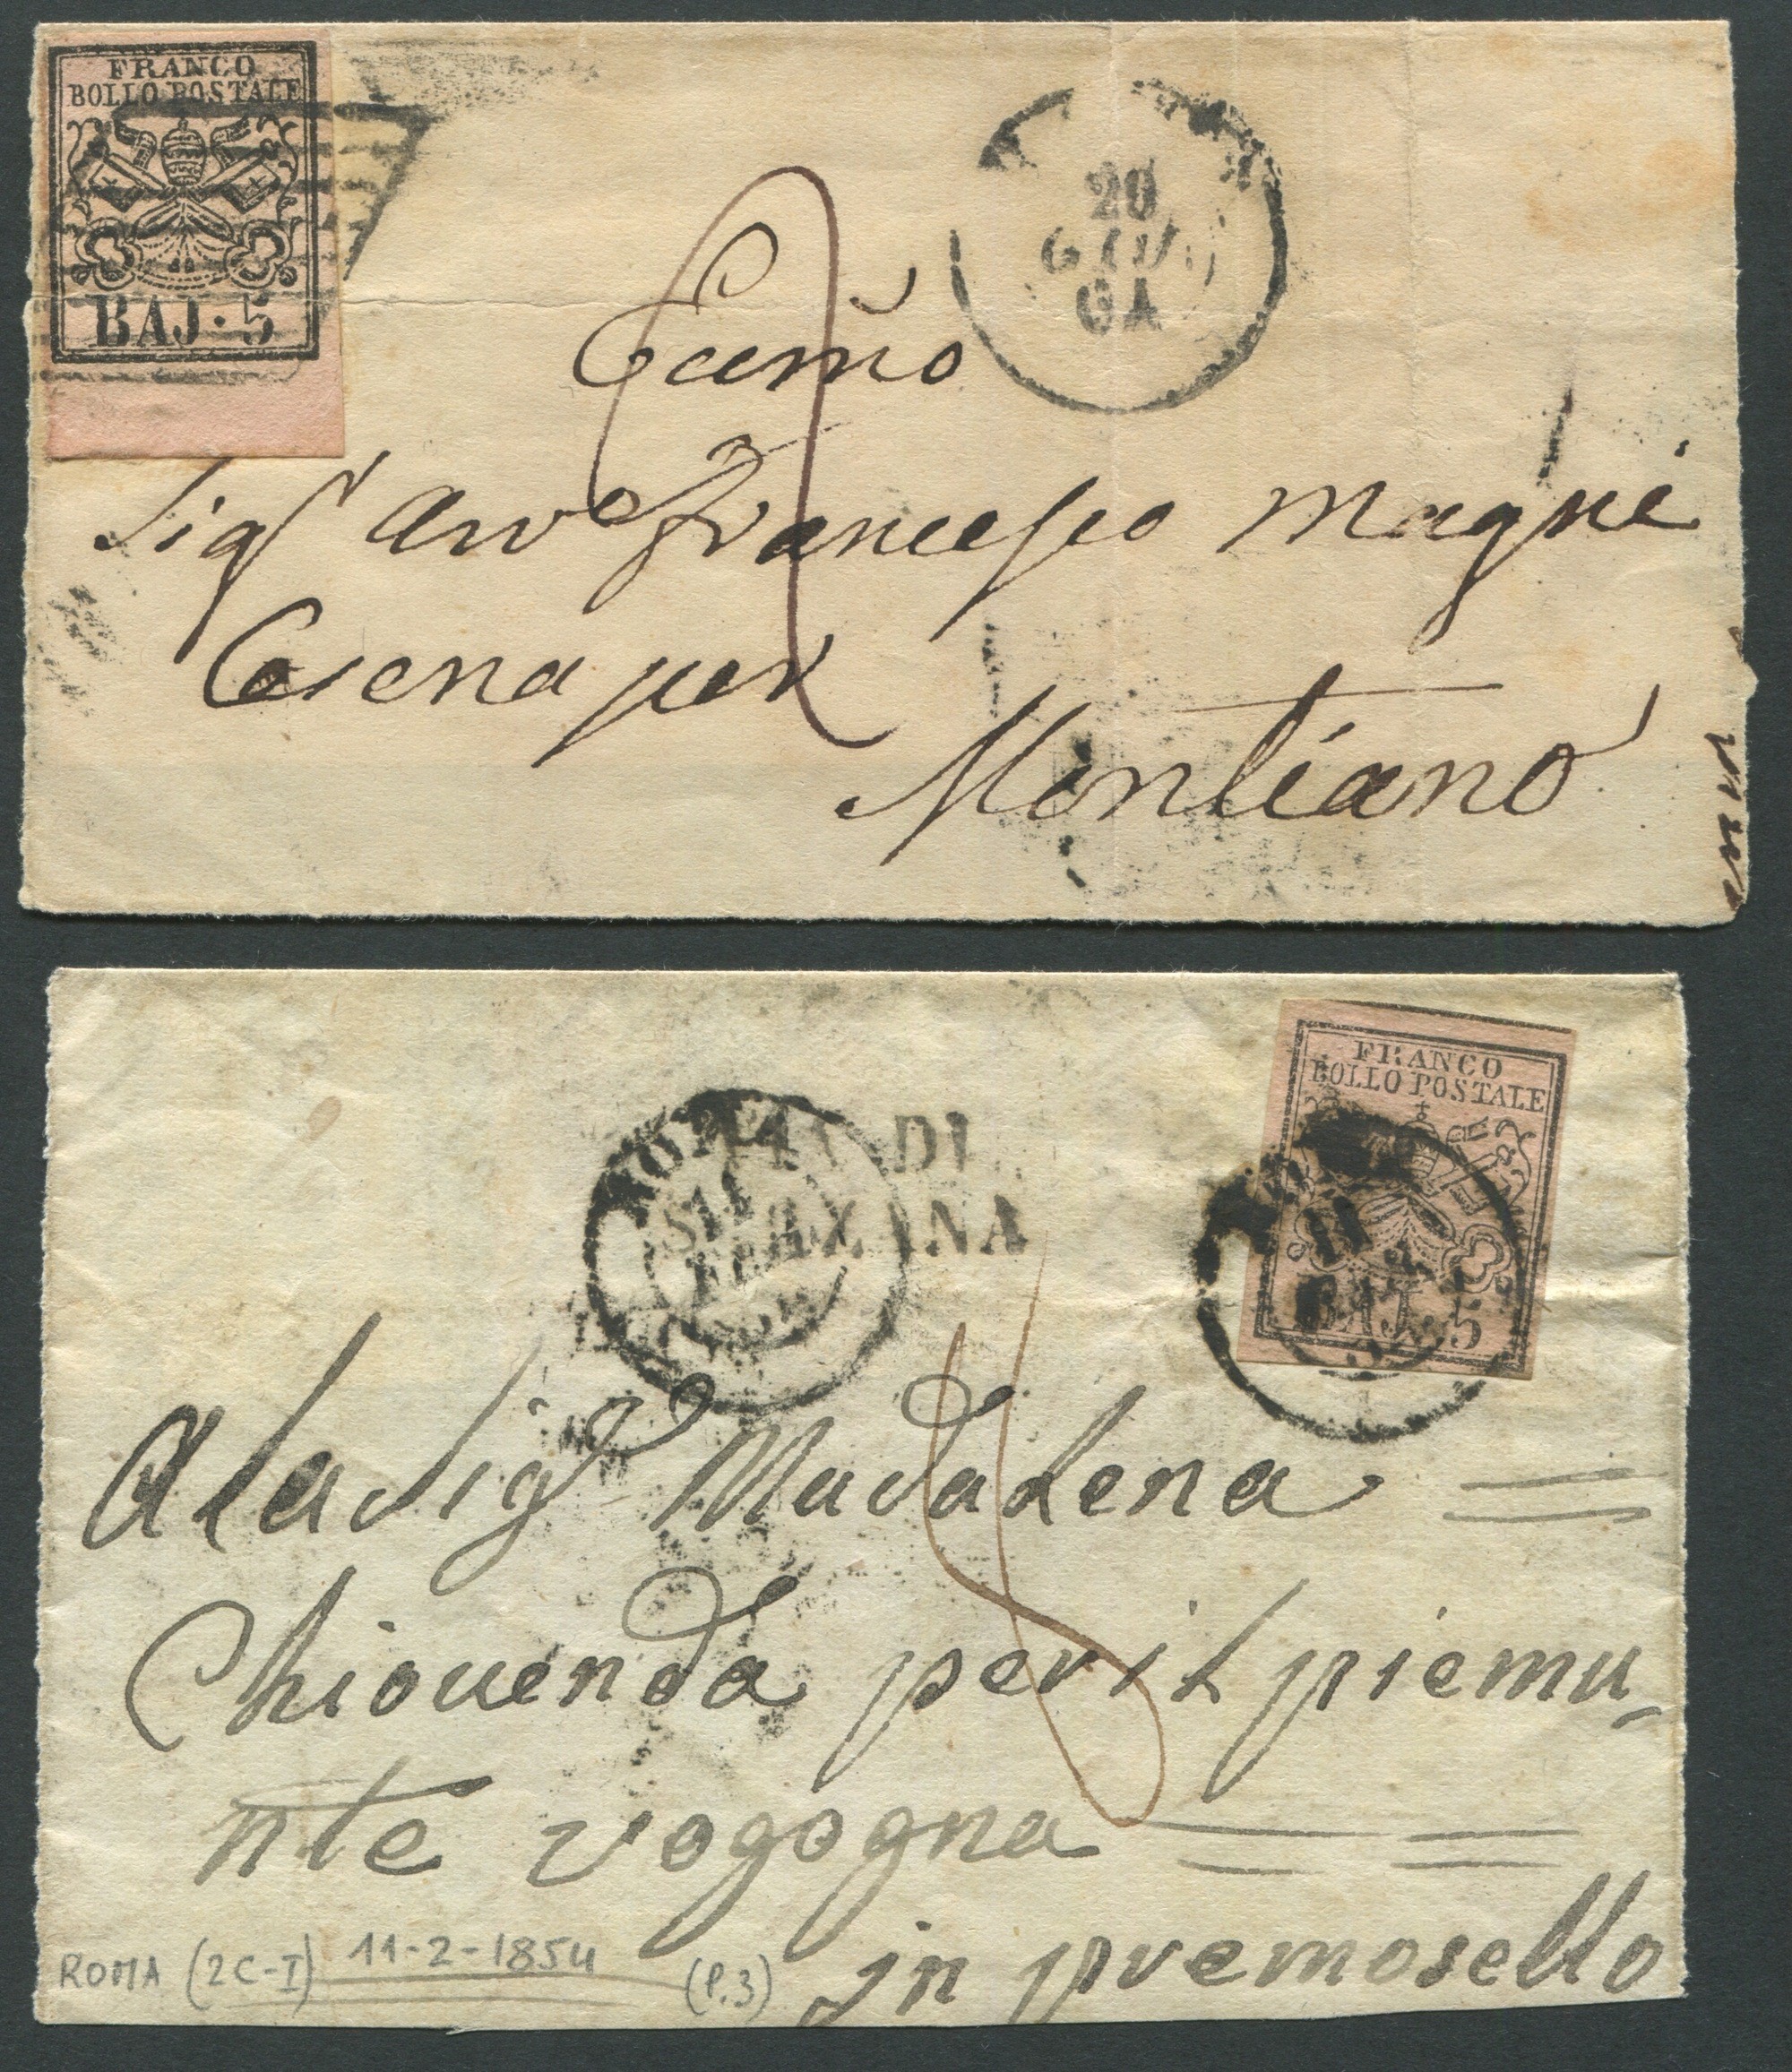 FRANCO
BOLLO POSTALE
BAJ·5
20
GIU.
Sigr Francesco Magni
Cesena per
Montiano
FRANCO
BOLLO POSTALE
BAJ. 5
11
ROMA
VIA DI
SARZANA
Ala Siga Madalena
Chiovenda per il piemu-
nte vogogna
in premosello
ROMA (2C-I) 11-2-1854 (P.3)